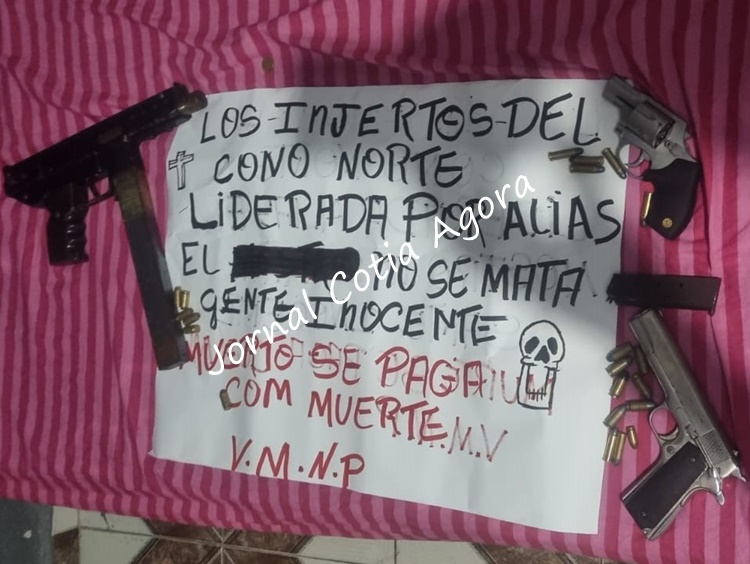 LOS-INJERTOS-DEL
CONO NORTE
LIDERADA POR ALIAS
EL NO SE MATA
GENTE INOCENTE
MUERTO SE PAGA
COM MUERTE
M.V
V.M.N.P
Jornal Cotia Agora